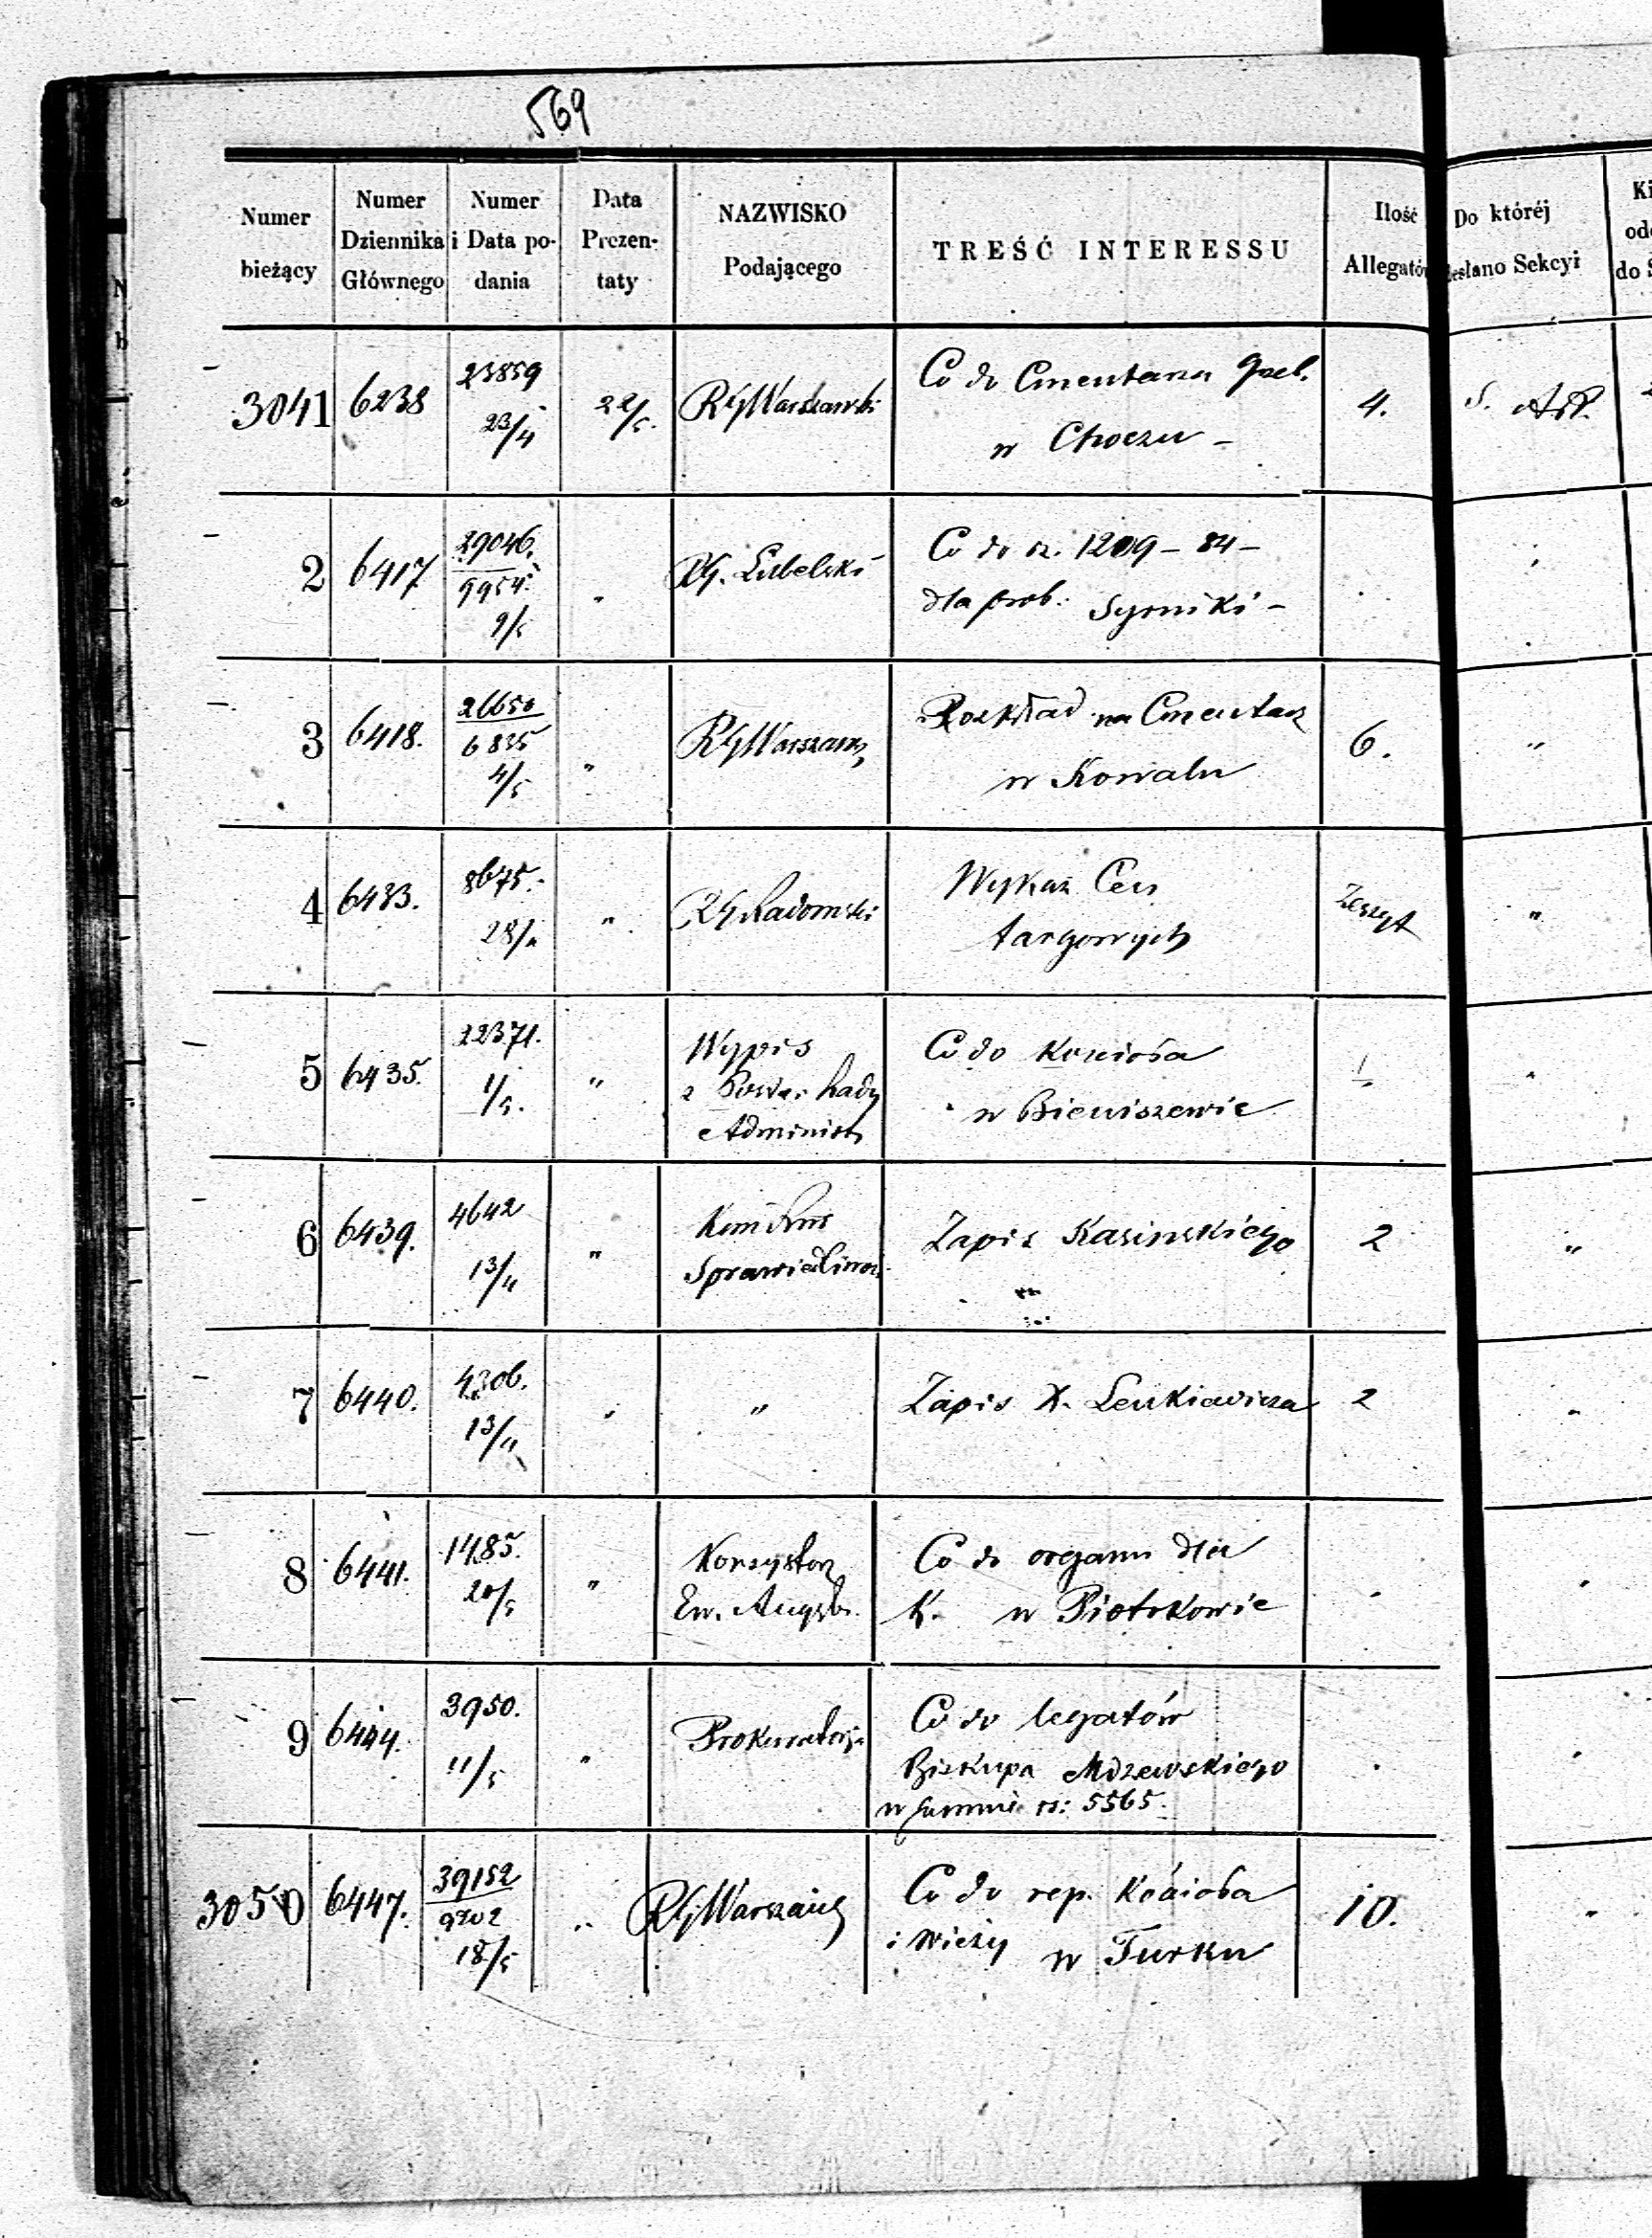 569
Numer bieżący
Numer Dziennika Głównego
Numer i Data podania
Data Prezentaty
NAZWISKO Podającego
TREŚĆ INTERESSU
Ilość Allegatów
Do któréj
esłano Sekcyi
3041 6238 23859 23/4 22/5. RG Warszawski Co do Cmentarza Grzeb. w Choczu – 4. S.
2 6417 29046. 9954. 9/5 " RG. Lubelski Co do rs. 1209 – 84 – dla prob: Syrniki –
3 6418. 26650 6835 4/5 " RG Warszaws Rozkład na Cmentarz w Kowalu 6. "
4 6433. 8675. 28/4 " RG Radomski Wykaz Cen targowych Zeszyt "
5 6435. 22371. 1/5. " Wypis z Posie. Rady Administ Co do Kościoła w Bieniszewie 1 "
6 6439. 4642 13/4 " Kom Sprawiedliwoś Zapis Kasinskiego 2 "
7 6440. 4306. 13/4 " " Zapis X. Lenkiewicza 2 "
8 6441. 1485. 20/5 " Konsystorz Ew. Augsb. Co do organu dla K. w Piotrkowie "
9 6444. 3950. 11/5 " Prokuratorja Co do legatów Biskupa Mdzewskiego w summie rs: 5565. "
3050 6447. 39152 9702 18/5 " RG Warszaws Co do rep. Kościoła i wieży w Turku 10. "